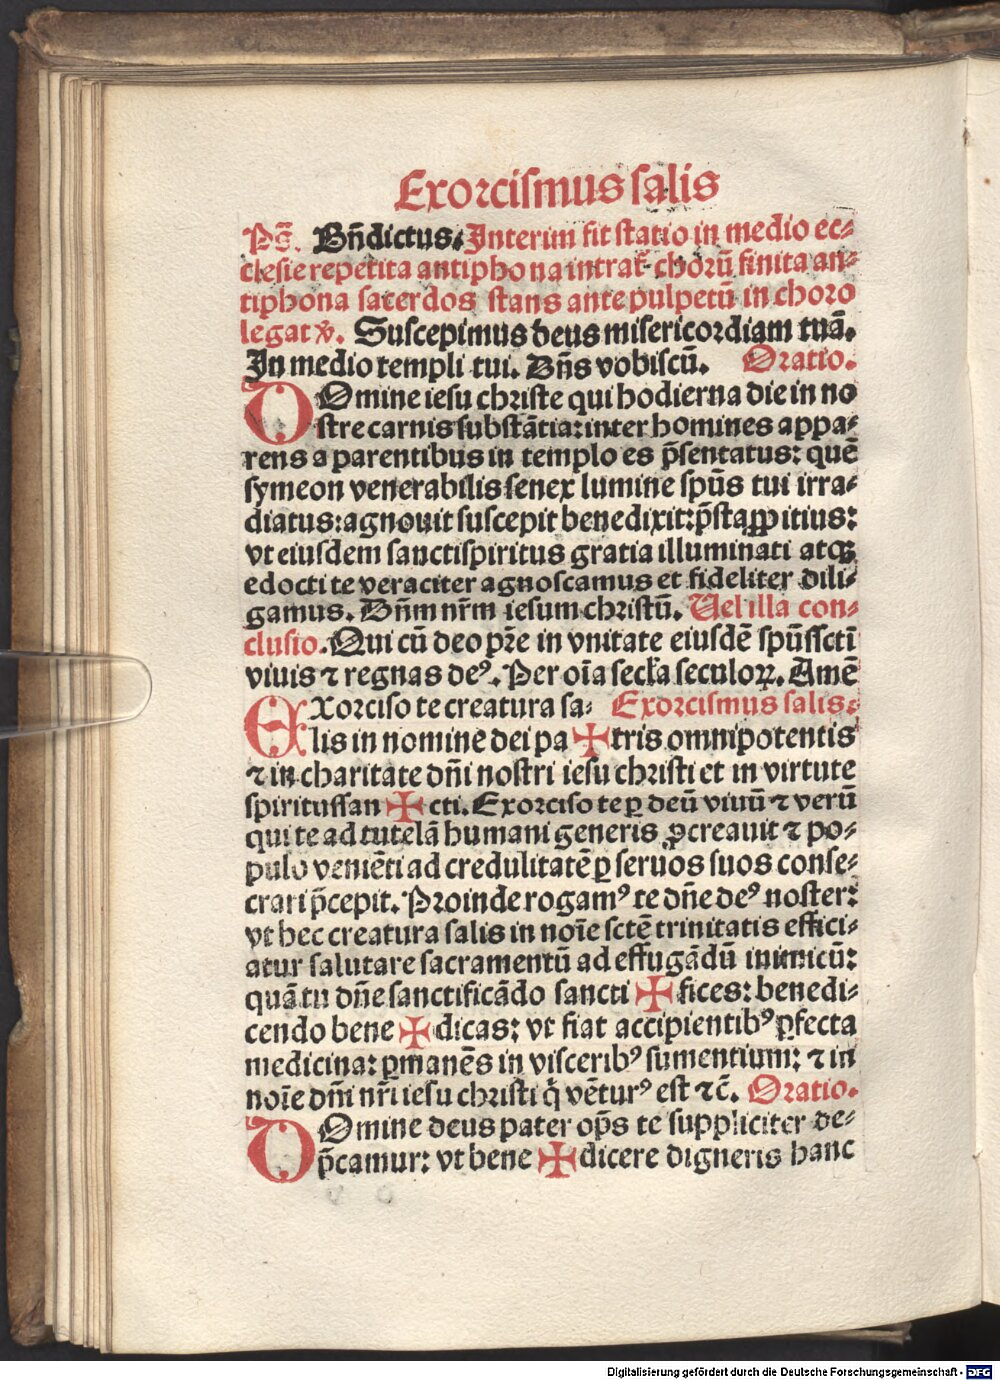 Exorcismus salis
Ps̄. Bn̄dictus. Interim fit statio in medio ec⸗
clesie repetita antiphona intrat̄ chorū finita an⸗
tiphona sacerdos stans ante pulpetū in choro
legat ℣. Suscepimus deus misericordiam tuā.
In medio templi tui. Dn̄s vobiscū. Oratio.
DOmine iesu christe qui hodierna die in no
stre carnis substātia: inter homines appa⸗
rens a parentibus in templo es p̄sentatus: quē
symeon venerabilis senex lumine spūs tui irra⸗
diatus: agnouit suscepit benedixit: p̄sta ꝓpitius:
vt eiusdem sanctispiritus gratia illuminati atqꝫ
edocti te veraciter agnoscamus et fideliter dili⸗
gamus. Dn̄m nr̄m iesum christū. Uel illa con⸗
clusio. Qui cū deo pr̄e in vnitate eiusdē spūssctī
viuis ⁊ regnas deꝰ. Per oīa secl̄a seculoꝝ. Amē
EXorciso te creatura sa⸗ Exorcismus salis.
lis in nomine dei pa ✠ tris omnipotentis
⁊ in charitate dn̄i nostri iesu christi et in virtute
spiritussan ✠ cti. Exorciso te ꝑ deū viuū ⁊ verū
qui te ad tutelā humani generis ꝓcreauit ⁊ po⸗
pulo veniēti ad credulitatē ꝑ seruos suos conse⸗
crari p̄cepit. Proinde rogamꝰ te dn̄e deꝰ noster:
vt hec creatura salis in noīe sctē trinitatis effici⸗
atur salutare sacramentū ad effugādū inimicū:
quā tu dn̄e sanctificādo sancti ✠ fices: benedi⸗
cendo bene ✠ dicas: vt fiat accipientibꝰ ꝑfecta
medicina: ꝑmanēs in visceribꝰ sumentium: ⁊ in
noīe dn̄i nr̄i iesu christi q̇ vēturꝰ est ⁊c̄. Oratio.
DOmine deus pater op̄s te suppliciter de⸗
p̄camur: vt bene ✠ dicere digneris hanc
Digitalisierung gefördert durch die Deutsche Forschungsgemeinschaft - DFG